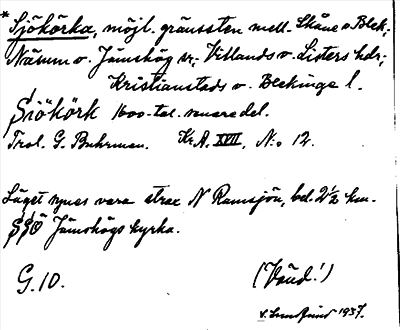 * Sjökörka, möjl. gränssten mell. Skåne o. Blek.;
Näsum o. Jämshög sr; Villands o. Listers hdr;
Kristianstads o. Blekinge l.
Siökörk 1600-tal. senare del.
Trol. G. Buhrman. Kr.A. XVII, N:o 12.
Läget synes vara strax N Ramsjön, bel. 2½ km.
SSÖ Jämshögs kyrka.
G. 10. (Vänd!)
1937.